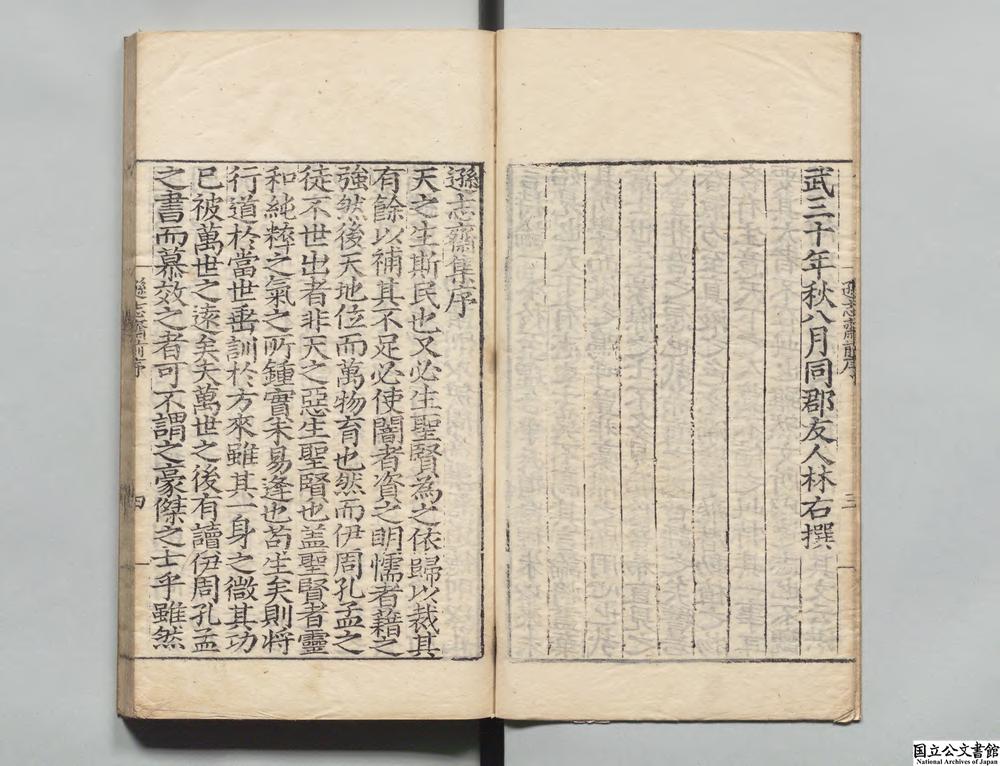 武三十年秋八月同郡友人林右撰
遜志齋集序
天之生斯民也又必生聖賢為之依歸以裁其
有餘以補其不足必使闇者資之明懦者藉之
強然後天地位而萬物育也然而伊周孔孟之
徒不世出者非天之惡生聖賢也盖聖賢者靈
和純粹之氣之所鍾實未易逢也茍生矣則將
行道於當世垂訓於方來雖其一身之微其功
已被萬世之遠矣夫萬世之後有讀伊周孔孟
之書而慕效之者可不謂之豪傑之士乎雖然
三
四
国立公文書館
National Archives of Japan